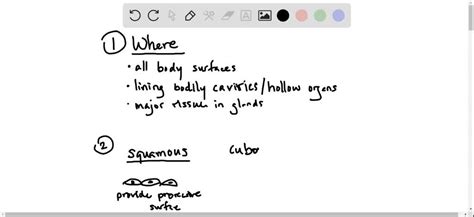 ① Where
• all body surfaces
• lining bodily cavities/hollow organs
• major tissue in glands
② squamous cubo
provide protective
surface